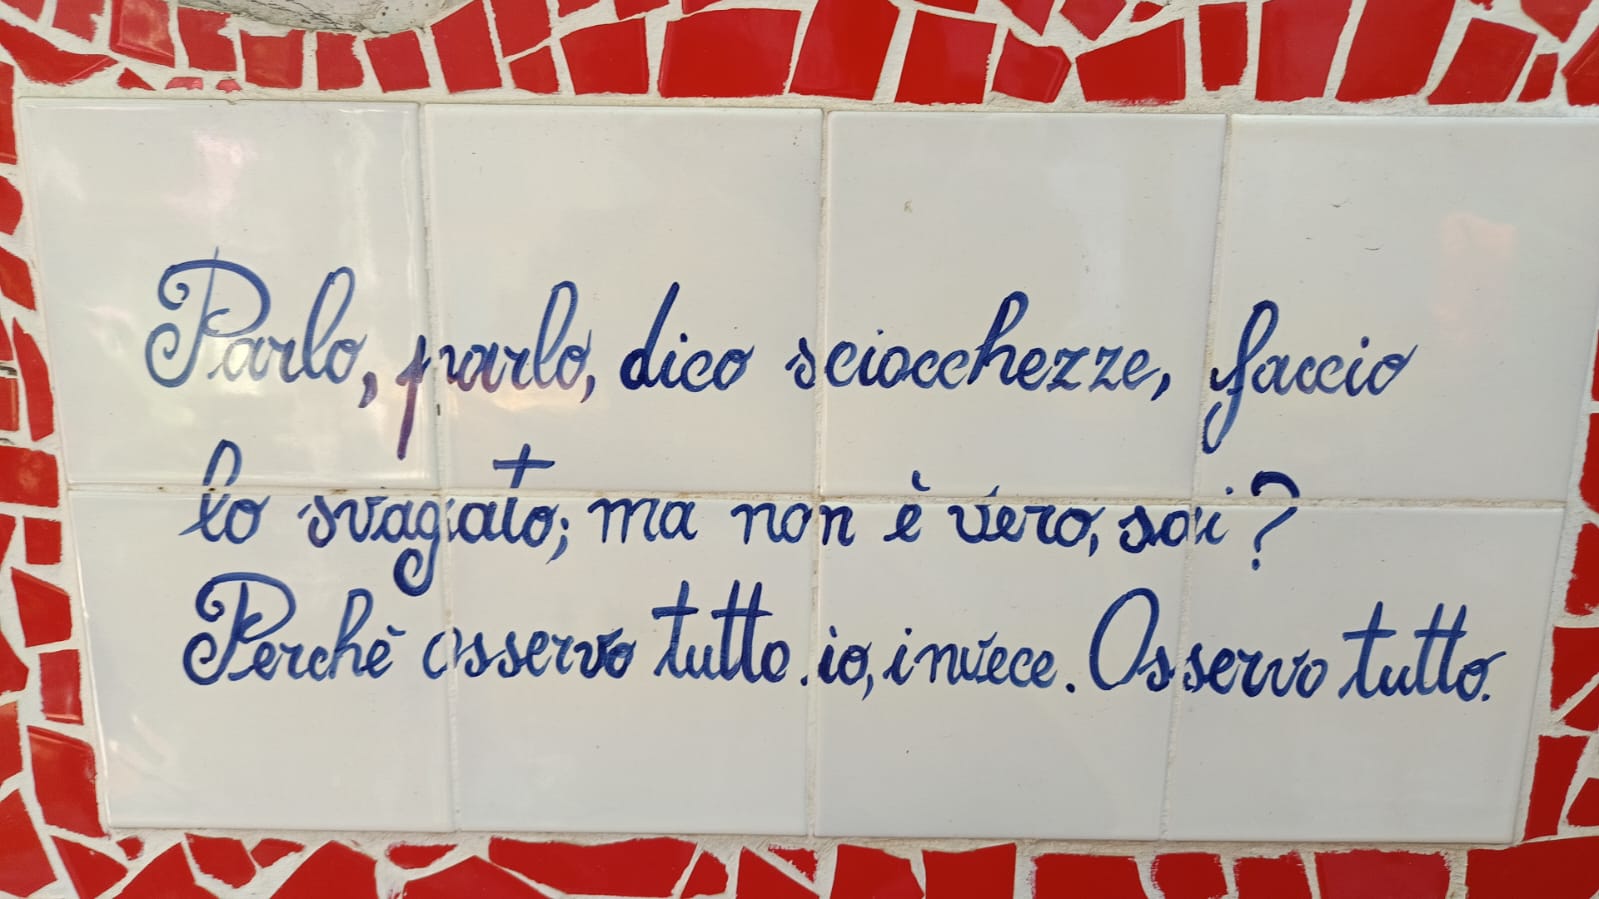 Parlo, parlo, dico sciocchezze, faccio
lo svagato; ma non è vero, sai?
Perchè osservo tutto io, invece. Osservo tutto.